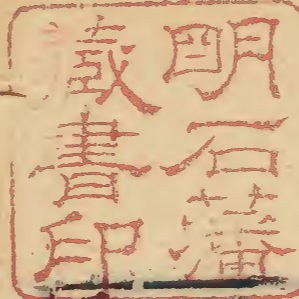 明石藩
蔵書印